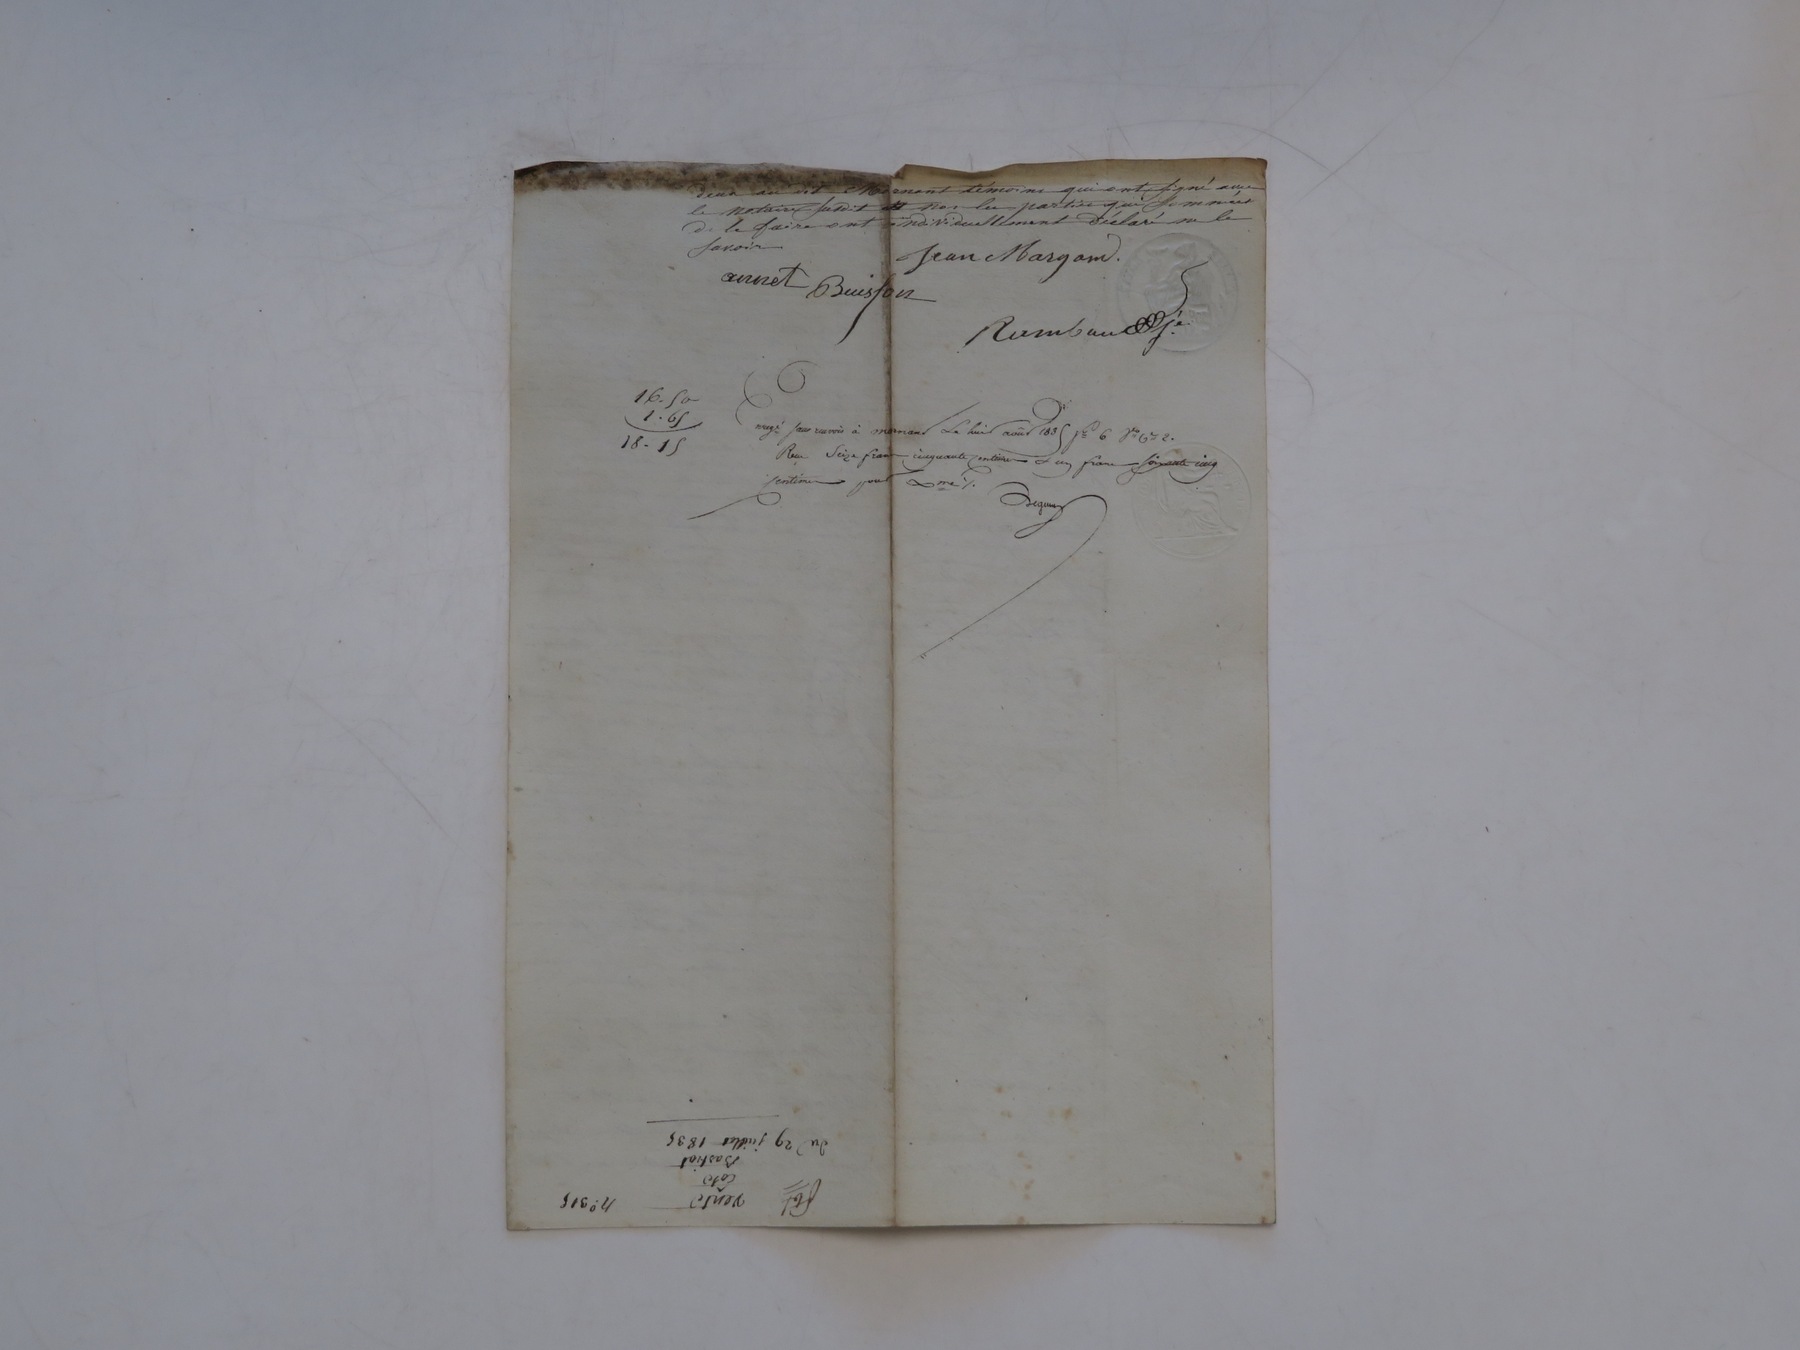 deux au dit Mornant témoins qui ont signé avec
le notaire susdit et non les parties qui sommées
de le faire ont individuellement déclaré ne le
savoir
Jean Margand.
annet Buisson
Rambaud
16-50
1-65
18-15
à mornant Le huit août 1835 f° 6
Reçu Seize francs cinquante centimes & un franc soixante cinq
centimes pour
n° 315
vente
Bastiat
du 29 juillet 1835